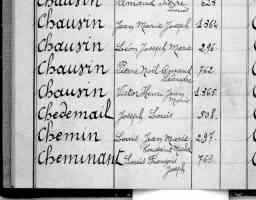 Chausin Armand Pierre 623.
Louis
Chausin Jean Marie Joseph 1364
Chausin Léon Joseph Marie 296.
Chausin Pierre Noël Armand 762
Alexandre
Chausin Victor Henri Jean 1365.
Marie
Chedemail Joseph Louis 508.
Chemin Louis Jean Marie 297.
Cheminant Louis François 763.
Joseph